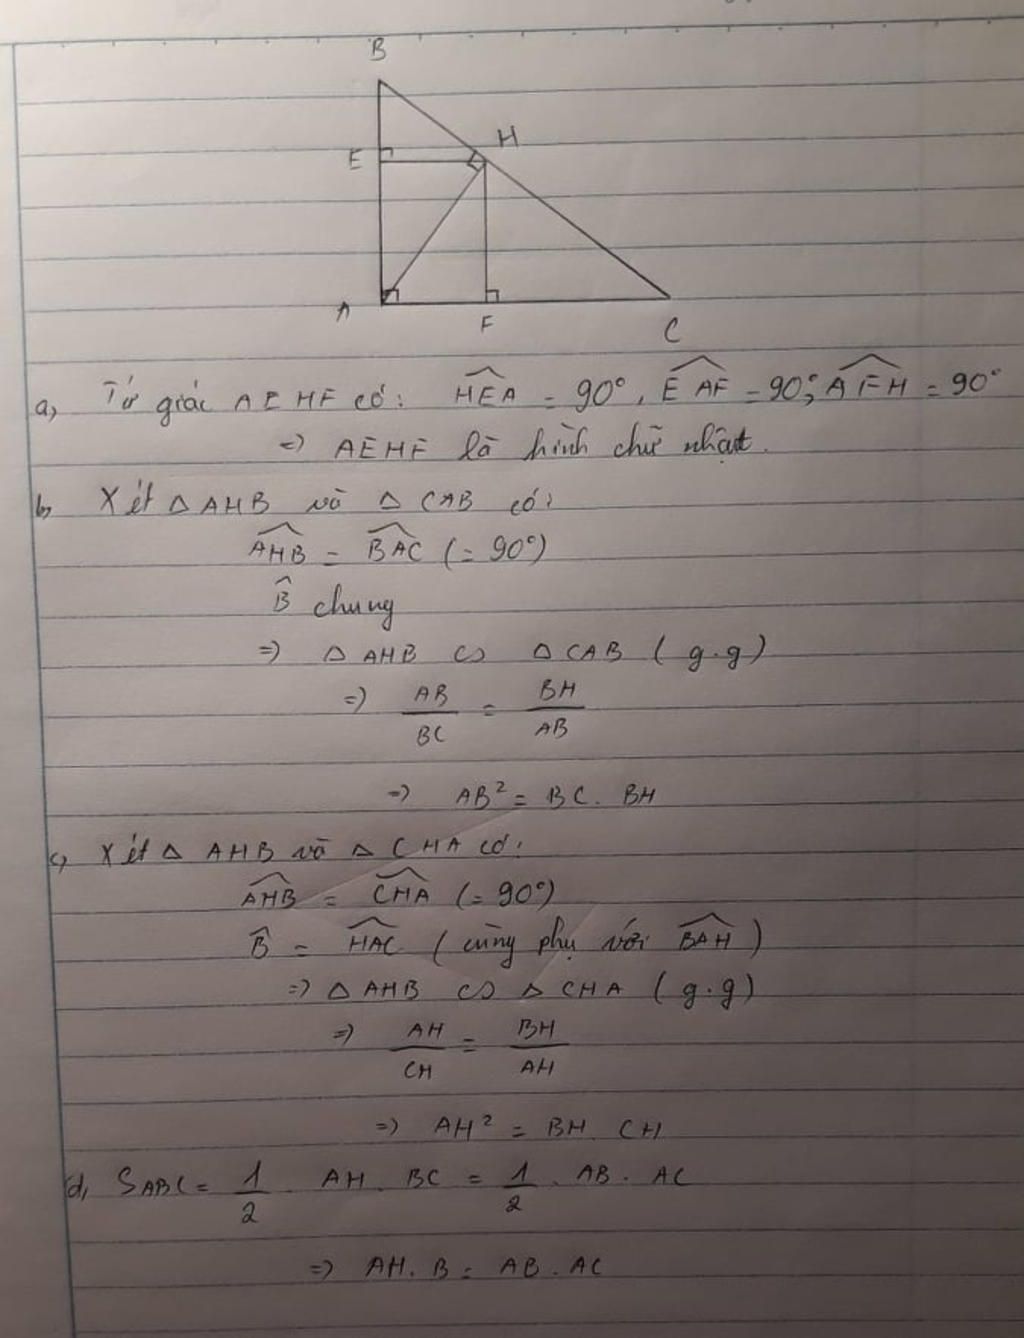 B
H
E
A
F
C
a, Tứ giác AEHF có: $\widehat{HEA}$ = 90°, $\widehat{EAF}$ = 90°, $\widehat{AFH}$ = 90°
=> AEHF là hình chữ nhật.
b, Xét △ AHB và △ CAB có:
$\widehat{AHB}$ = $\widehat{BAC}$ (= 90°)
$\widehat{B}$ chung
=> △ AHB ∽ △ CAB (g.g)
=> $\frac{AB}{BC}$ = $\frac{BH}{AB}$
=> AB² = BC. BH
c, Xét △ AHB và △ CHA có:
$\widehat{AHB}$ = $\widehat{CHA}$ (= 90°)
$\widehat{B}$ = $\widehat{HAC}$ (cùng phụ với $\widehat{BAH}$)
=> △ AHB ∽ △ CHA (g.g)
=> $\frac{AH}{CH}$ = $\frac{BH}{AH}$
=> AH² = BH. CH
d, SABC = $\frac{1}{2}$. AH. BC = $\frac{1}{2}$. AB. AC
=> AH. B = AB. AC